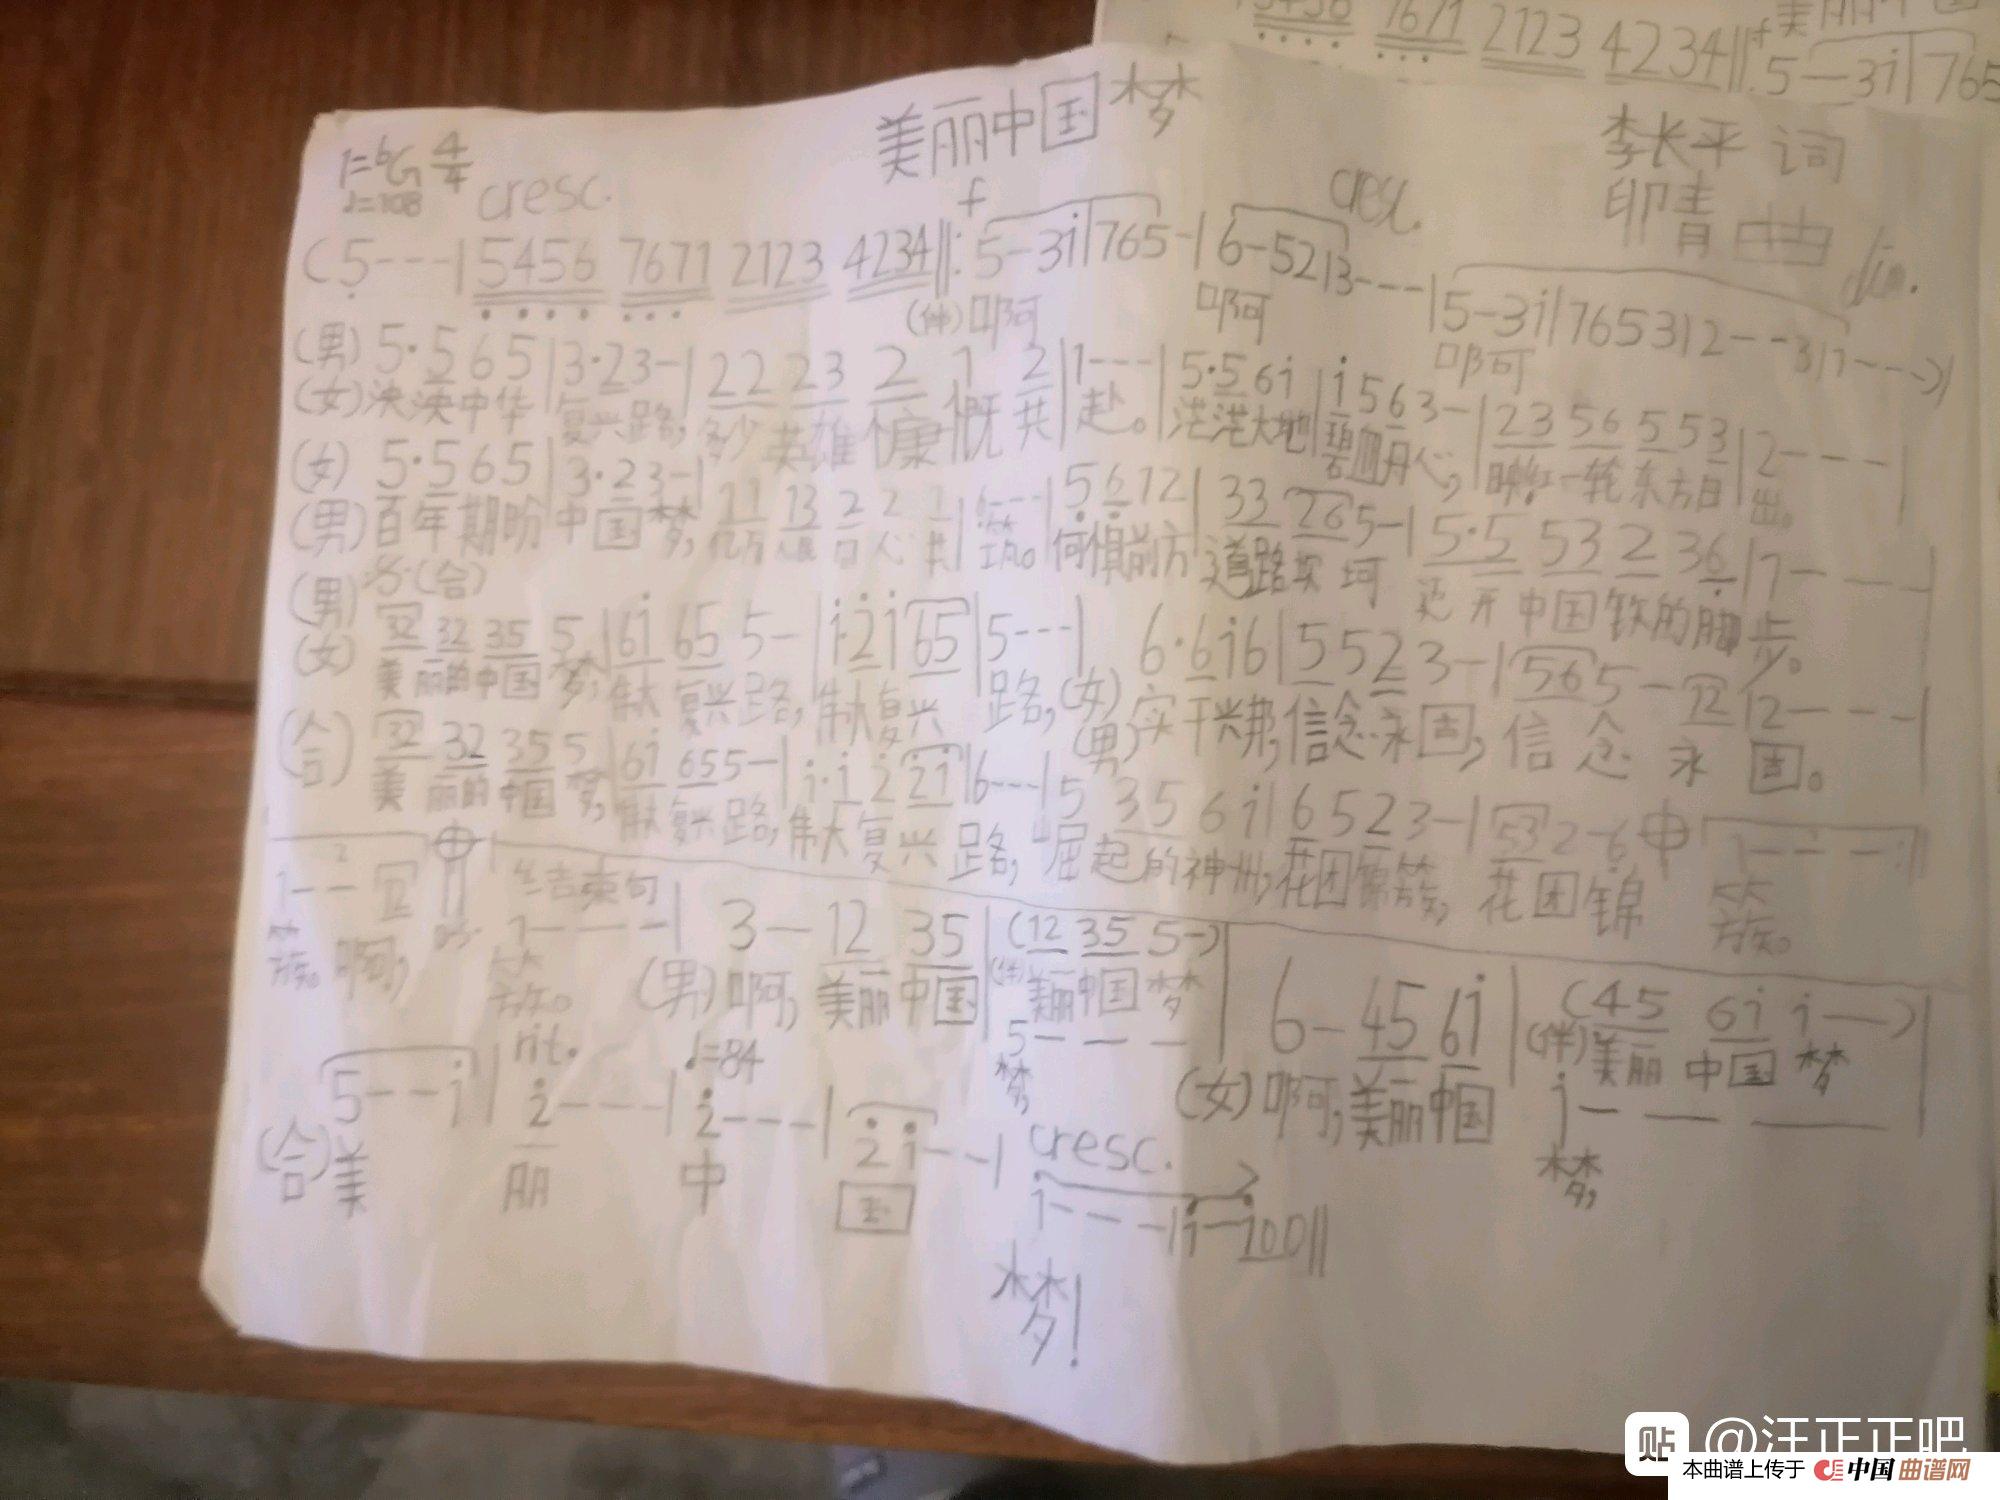 5456 7671 2123 4234‖: 5—3i|765
美丽中国梦
1=♭G 4/4
♩=108
李长平 词
印青 曲
cresc. f cresc. dim.
(5---|5456 7671 2123 4234‖: 5-3i|765-|6-521|3---|5-3i|76531|2--31|1---)|
(伴)啊 啊 啊
(男) 5·565|3·23-|22 23 2 1 2|1---|5·56i|i563-|23 56 5 53|2---|
(女)泱泱中华 复兴路,多少英雄慷慨共赴。茫茫大地碧血丹心,映红一轮东方日出。
(女) 5·565|3·23-|11 13 2 2 1|6---|5612|33 26 5-|5·5 53 2 36|1---|
(男)百年期盼 中国梦,亿万人民 齐心共筑。何惧前方道路坎坷 迈开中国铁的脚步。
(男) 𝄋(合)
32 32 35 5|6i 65 5-|i·2i65|5---|6·6i6|5523-|565-12|2---|
(女) 美丽的中国梦,伟大复兴路,伟大复兴 路,(女)实干兴邦,信念永固,信念永固。
(男)
(合) 32 32 35 5|6i 655-|i·i 2 2i|6---|5 3 5 6 i|6 523-|53 2-6 1---:‖
美丽的中国梦,伟大复兴路,伟大复兴路,崛起的神州,花团锦簇,花团锦 簇。
结束句
1--12 1---|3-12 35|(12 35 5-)|6-45 6i|(45 6i i—)
簇。啊, 簇。 (男)啊,美丽中国 (伴)美丽中国梦 (女)啊,美丽中国 (伴)美丽 中国 梦
5— — — i— — —
梦, 梦,
rit. ♩=84 cresc.
5--i|2---|2---|2i--|i---|i-i00‖
(合)美 丽 中 国 梦!
贴 @汪正正吧
本曲谱上传于 中国曲谱网